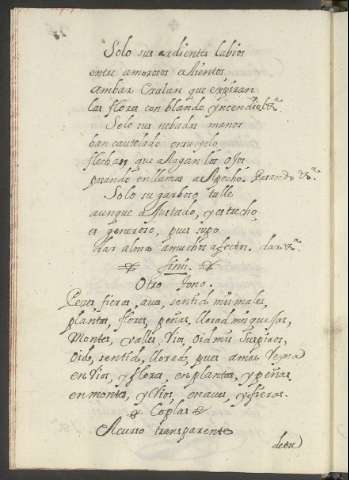 Solo sus ardientes labios
entre amorosos alientos
ambar exalan que expiran
las flores con blando yncendio &ra.
Solo sus nebadas manos
han cautelado en su yelo
flechas que alagan los ojos
prendo en llamas al pecho. &ra.
Solo su garboso talle
aunque ajustado, y estrecho
es generoso, pues supo
dar almas a muchos afectos. dar &ra.
fin.
Otro Tono.
Pezes fieras, aues, sentid mis males,
plantas, flores, peñas, llorad mis quejas,
Montes, y valles, rios, oid mis suspiros,
oid, sentid, llorad, pues amor
en rios, y flores, en plantas, y peñas
en montes, y rios, en aues, y fieras.
Coplas
A curso transparente